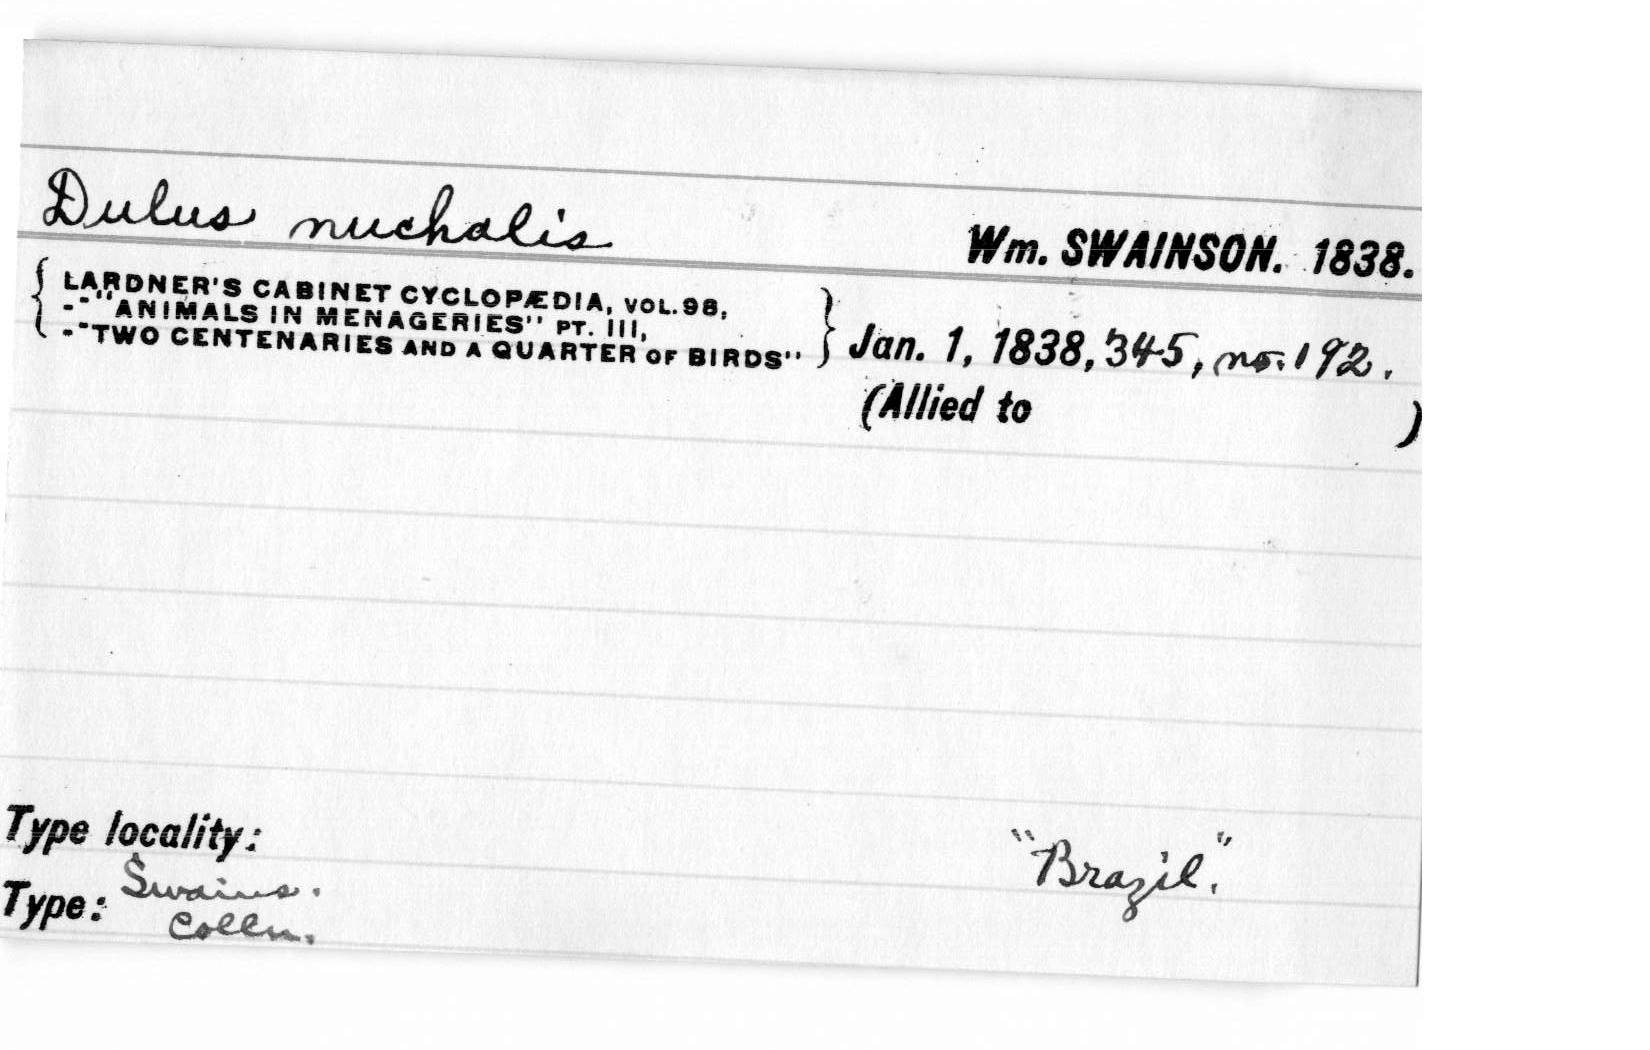 Dulus nuchalis
Wm. SWAINSON. 1838.
{ LARDNER'S CABINET CYCLOPÆDIA, VOL. 98,
--"ANIMALS IN MENAGERIES" PT. III,
--"TWO CENTENARIES AND A QUARTER OF BIRDS" } Jan. 1, 1838, 345, no. 192.
(Allied to )
Type locality: "Brazil".
Type: Swains.
Colln.